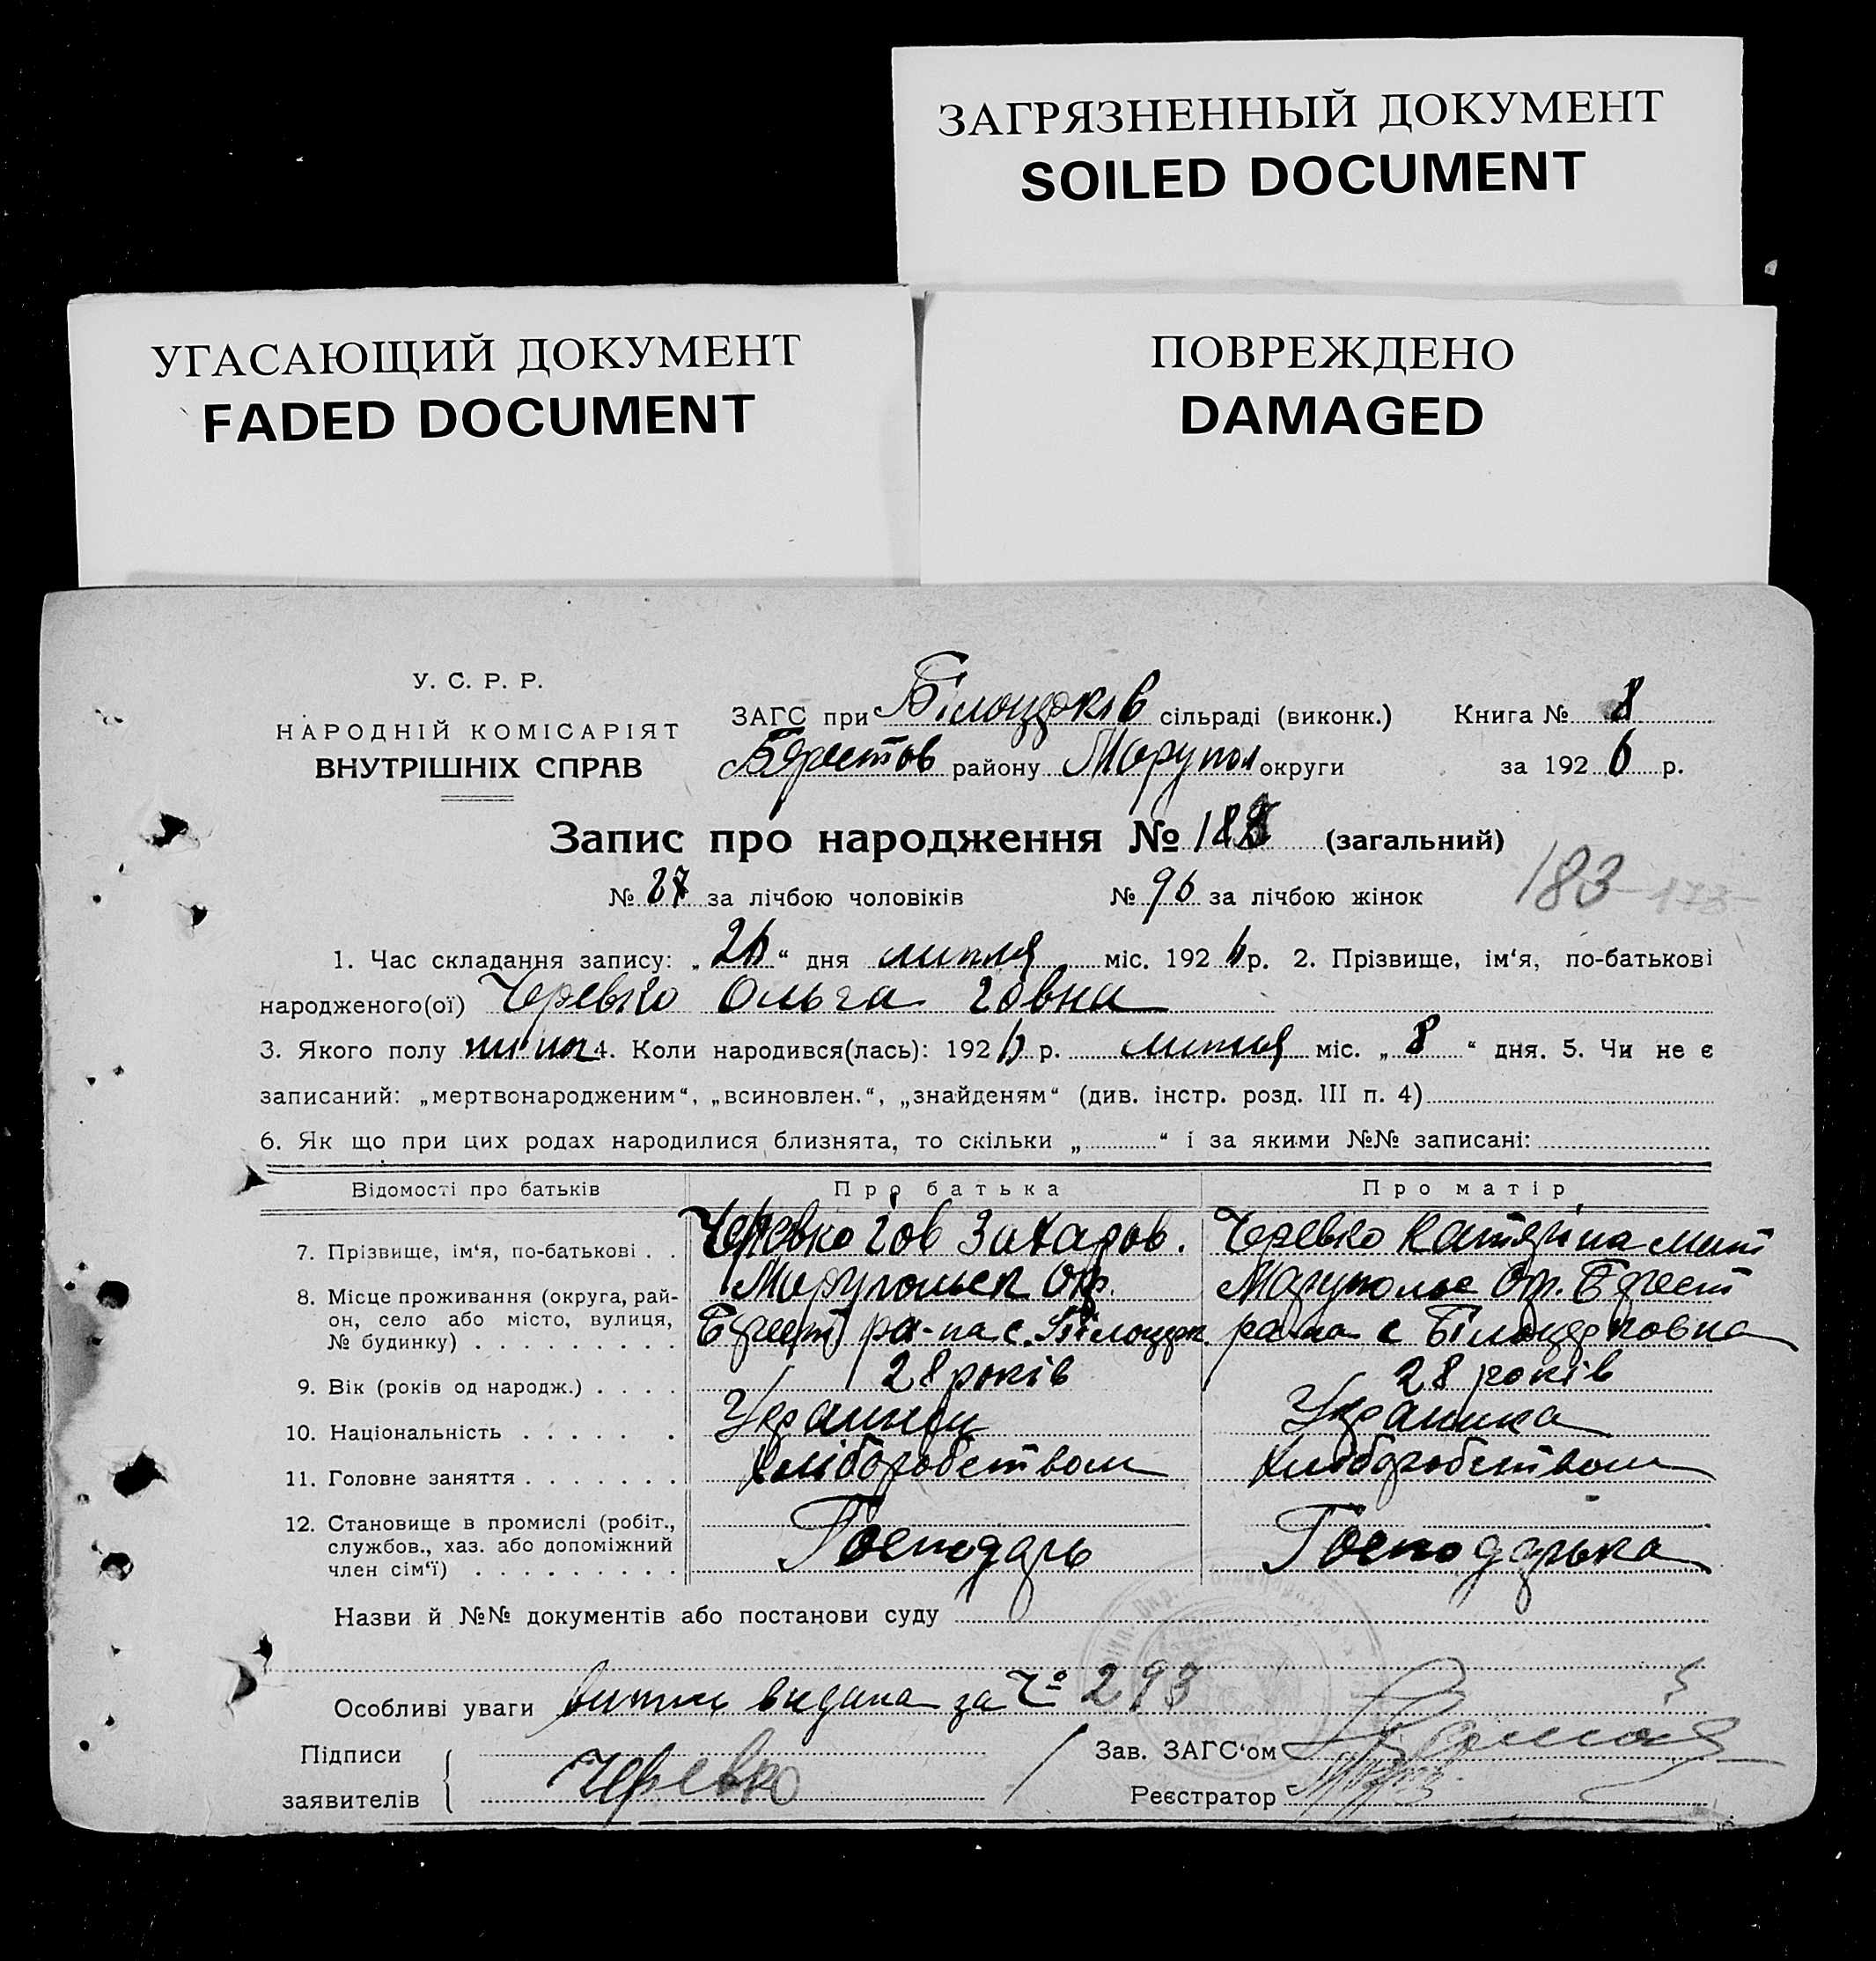 ЗАГРЯЗНЕННЫЙ ДОКУМЕНТ
SOILED DOCUMENT
УГАСАЮЩИЙ ДОКУМЕНТ
FADED DOCUMENT
ПОВРЕЖДЕНО
DAMAGED
У. С. Р. Р.
НАРОДНІЙ КОМІСАРІЯТ
ВНУТРІШНІХ СПРАВ
ЗАГС при Білоцерків сільраді (виконк.) Книга № 8
району округи за 192 6 р.
Запис про народження № (загальний)
183
№ за лічбою чоловіків № 96 за лічбою жінок
1. Час складання запису: „ “ дня липня міс. 192 6 р. 2. Прізвище, ім‘я, по-батькові
народженого(ої) Черевко Ольга
3. Якого полу 4. Коли народився(лась): 192 6 р. липня міс. „ 8 “ дня. 5. Чи не є
записаний: „мертвонародженим“, „всиновлен.“, „знайденям“ (див. інстр. розд. III п. 4)
6. Як що при цих родах народилися близнята, то скільки „ “ і за якими №№ записані:
Відомості про батьків Про батька Про матір
7. Прізвище, ім‘я, по-батькові . . Черевко Захаров. Черевко Катерина
8. Місце проживання (округа, рай-
он, село або місто, вулиця,
№ будинку) . . . . . . . . .
Окр.
Окр.
ра-на с.
ра-на с Білоцерковка
9. Вік (років од народж.) . . . . 28 років 28 років
10. Національність . . . . . . Українка
11. Головне заняття . . . . . . . Хліборобством Хліборобством
12. Становище в промислі (робіт.,
службов., хаз. або допоміжний
член сім‘ї) . . . . . . . . .
Господарь Господарька
Назви й №№ документів або постанови суду
Особливі уваги видана за №
Підписи
заявителів
Черевко
Зав. ЗАГС‘ом
Реєстратор